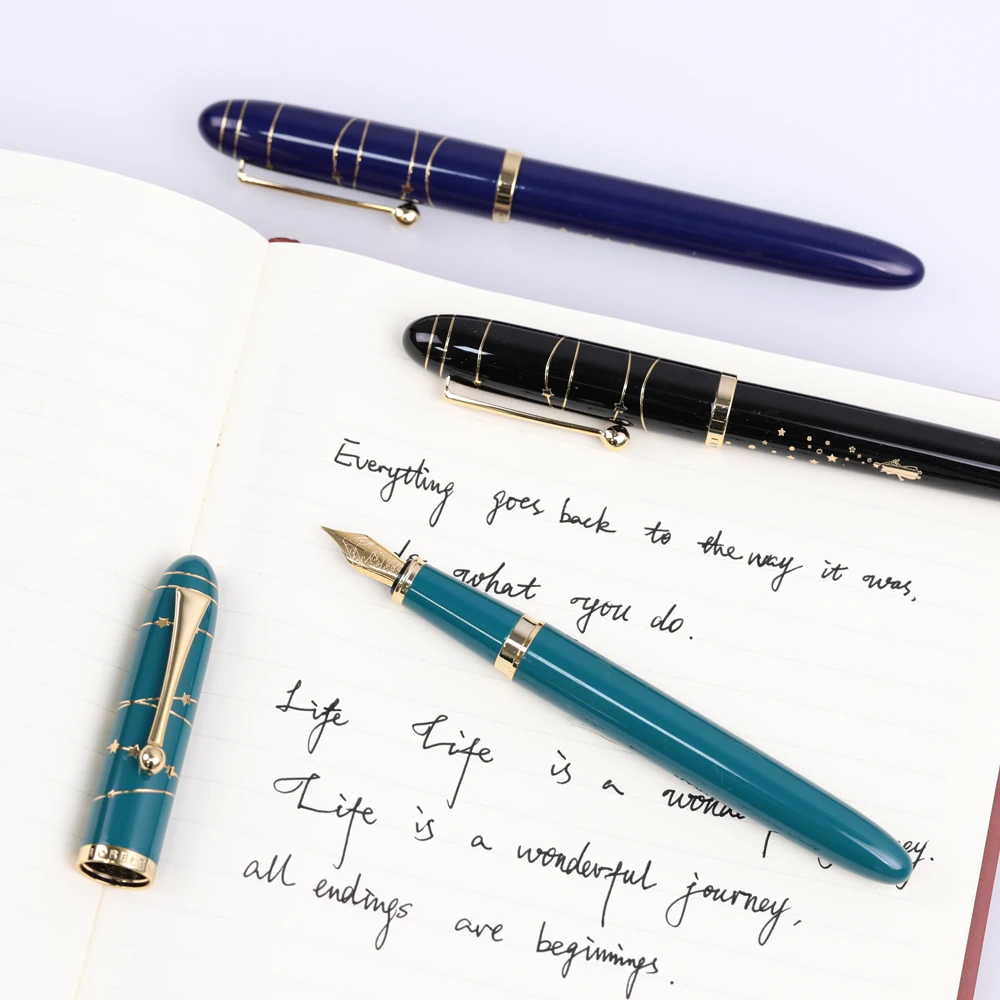 Everything goes back to the way it was,
what you do.
Life Life is a
Life is a wonderful journey,
all endings are beginnings.